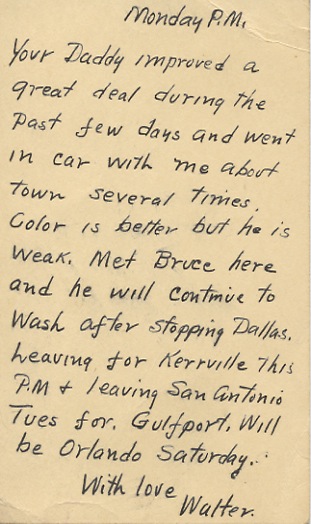 Monday P.M.
Your Daddy improved a
great deal during the
past few days and went
in car with me about
town several times.
Color is better but he is
weak. Met Bruce here
and he will continue to
Wash after stopping Dallas.
Leaving for Kerrville this
P.M + leaving San Antonio
Tues for. Gulfport. Will
be Orlando Saturday.
With love
Walter.